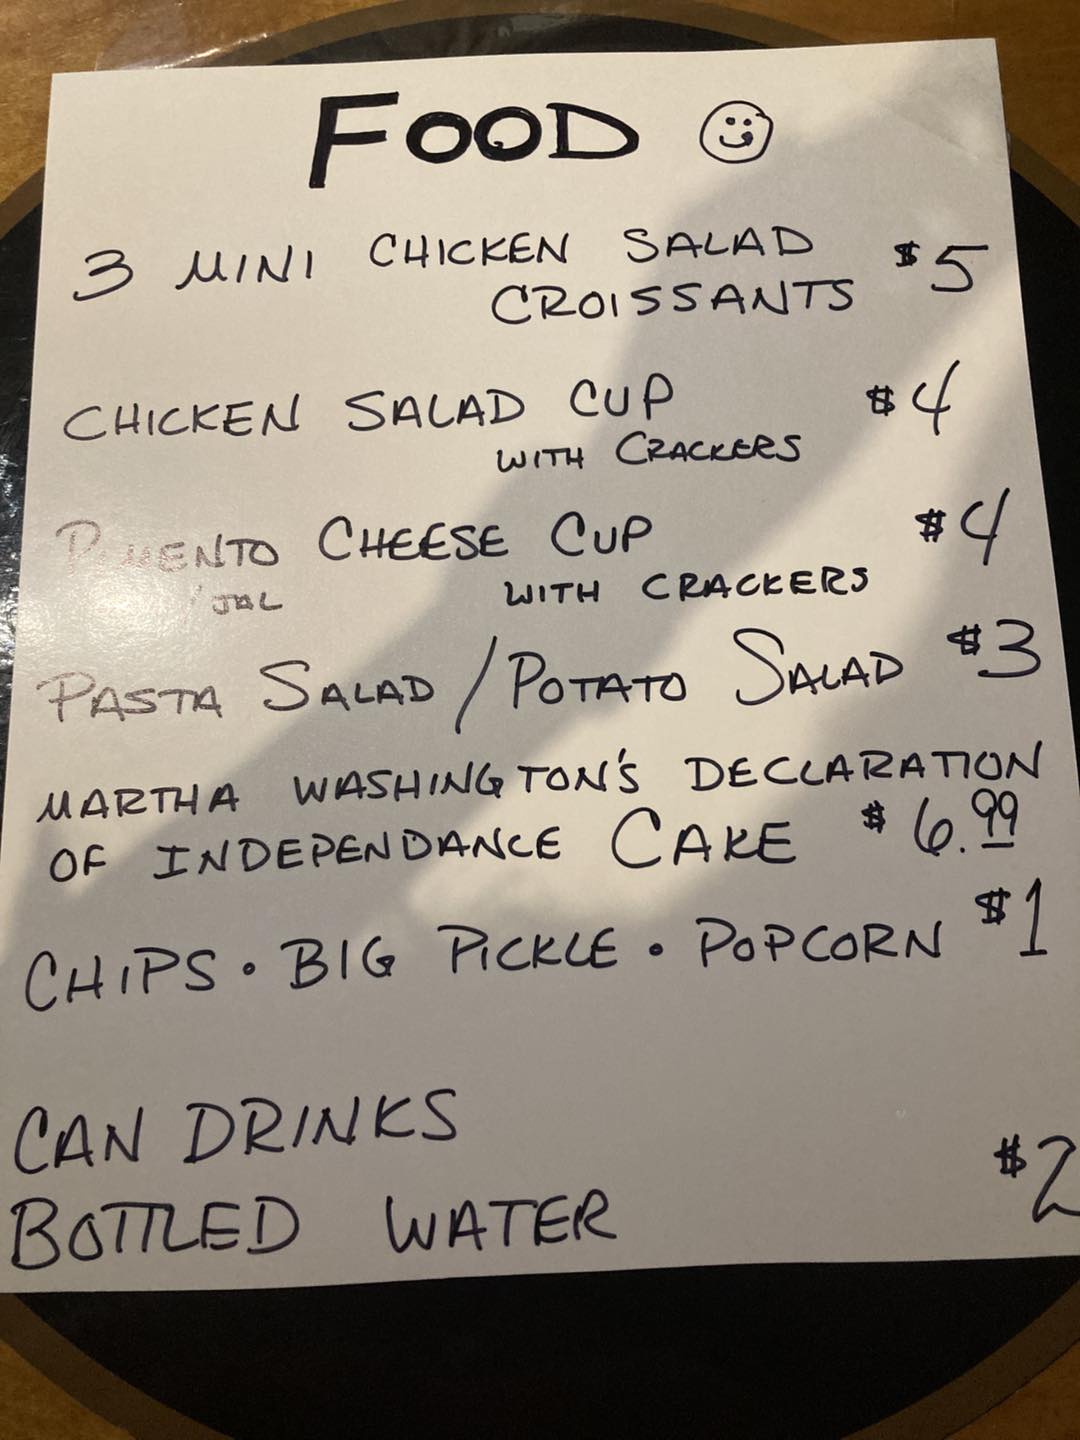 FOOD
3 MINI CHICKEN SALAD $5
CROISSANTS
CHICKEN SALAD CUP $4
WITH CRACKERS
PIMENTO CHEESE CUP $4
/JAL WITH CRACKERS
PASTA SALAD / POTATO SALAD $3
MARTHA WASHINGTON'S DECLARATION
OF INDEPENDANCE CAKE $6.99
CHIPS • BIG PICKLE • POPCORN $1
CAN DRINKS
BOTTLED WATER $2